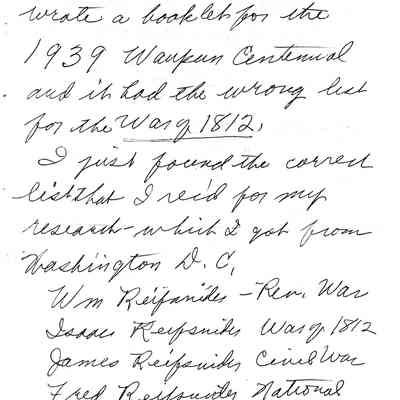 wrote a booklet for the
1939 Waupun Centennial
and it had the wrong list
for the War of 1812.
I just found the correct
list that I rec'd for my
research - which I got from
Washington D. C.
Wm Reifsnider - Rev. War
Isaac Reifsnider War of 1812
James Reifsnider Civil War
Fred Reifsnider National